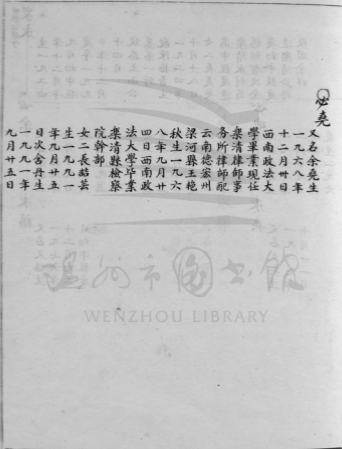 必堯
又名余堯生
一九六八年
十二月卅日
西南政法大
學畢業現任
樂清律師事
務所律師配
云南德宏州
梁河縣王艳
秋生一九六
八年九月廿
四日西南政
法大學毕業
樂清縣檢察
院幹部
女二長喆芸
生一九九一
年九月廿五
日次舍丹生
一九九一年
九月廿五日
温州市图书館
WENZHOU LIBRARY